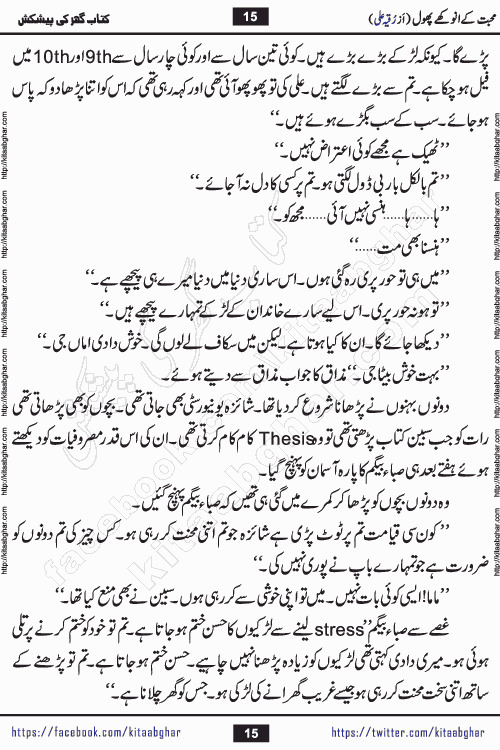 کتاب گھر کی پیشکش 15 محبت کے انوکھے پھول (از رقیہ علی)
پڑے گا۔ کیونکہ لڑکے بڑے بڑے ہیں۔ کوئی تین سال سے اور کوئی چار سال سے 9th اور 10th میں
فیل ہو چکا ہے۔ تم سے بڑے لگتے ہیں۔ علی کی تو پھوپھو آئی تھی اور کہہ رہی تھی کہ اس کو اتنا پڑھا دو کہ پاس
ہو جائے۔ سب کے سب بگڑے ہوئے ہیں۔‘‘
’’ٹھیک ہے مجھے کوئی اعتراض نہیں۔‘‘
’’تم بالکل باربی ڈول لگتی ہو۔ تم پر کسی کا دل نہ آ جائے۔‘‘
’’ہا...... ہا...... ہنسی نہیں آئی...... مجھ کو۔‘‘
’’ہنسنا بھی مت......‘‘
’’میں ہی تو حور پری رہ گئی ہوں۔ اس ساری دنیا میں دنیا میرے ہی پیچھے ہے۔‘‘
’’تو ہو نہ حور پری۔ اس لیے سارے خاندان کے لڑکے تمہارے پیچھے ہیں۔‘‘
’’دیکھا جائے گا۔ ان کا کیا ہوتا ہے۔ لیکن میں سکاف لے لوں گی۔ خوش دادی اماں جی۔‘‘
’’بہت خوش بیٹا جی۔‘‘ مذاق کا جواب مذاق سے دیتے ہوئے۔
دونوں بہنوں نے پڑھانا شروع کر دیا تھا۔ شائزہ یونیورسٹی بھی جاتی تھی۔ بچوں کو بھی پڑھاتی تھی
رات کو جب سبین کتاب پڑھتی تھی تو وہ Thesis کام کام کرتی تھی۔ ان کی اس قدر مصروفیات کو دیکھتے
ہوئے ہفتے بعد ہی صباء بیگم کا پارہ آسمان کو پہنچ گیا۔
وہ دونوں بچوں کو پڑھا کر کمرے میں گئی ہی تھیں کہ صباء بیگم پہنچ گئیں۔
’’کون سی قیامت تم پر ٹوٹ پڑی ہے شائزہ جو تم اتنی محنت کر رہی ہو۔ کس چیز کی تم دونوں کو
ضرورت ہے جو تمہارے باپ نے پوری نہیں کی۔‘‘
’’ماما! ایسی کوئی بات نہیں۔ میں تو اپنی خوشی سے کر رہی ہوں۔ سبین نے بھی منع کیا تھا۔‘‘
غصے سے صباء بیگم ’’stress لینے سے لڑکیوں کا حسن ختم ہو جاتا ہے۔ تم تو خود کو ختم کرنے پر تلی
ہوئی ہو۔ میری دادی کہتی تھی لڑکیوں کو زیادہ پڑھنا نہیں چاہیے۔ حسن ختم ہو جاتا ہے۔ تم تو پڑھنے کے
ساتھ اتنی سخت محنت کر رہی ہو جیسے غریب گھرانے کی لڑکی ہو۔ جس کو گھر چلانا ہے۔‘‘
https://facebook.com/kitaabghar 15 https://twitter.com/kitaabghar
http://kitaabghar.com http://kitaabghar.com http://kitaabghar.com http://kitaabghar.com